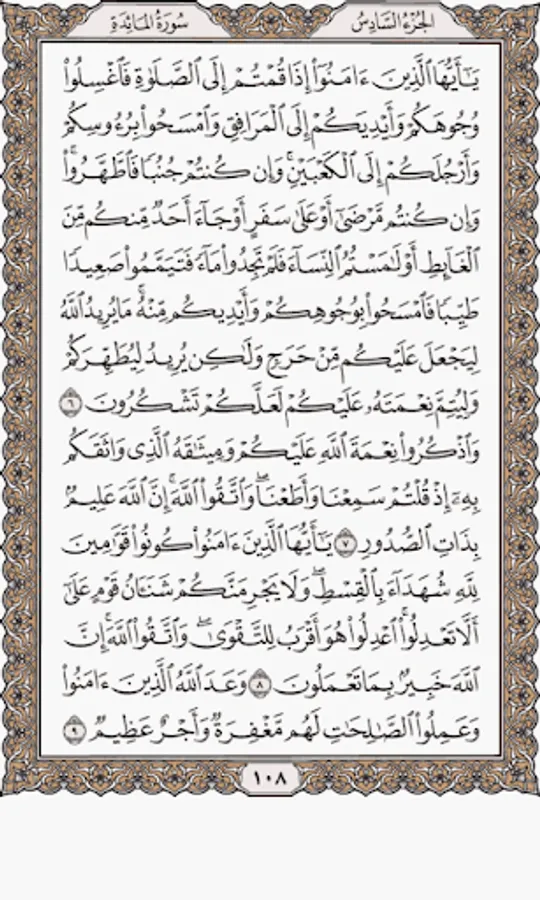 الجزء السادس
سورة المائدة
يَـٰٓأَيُّهَا ٱلَّذِينَ ءَامَنُوٓا۟ إِذَا قُمْتُمْ إِلَى ٱلصَّلَوٰةِ فَٱغْسِلُوا۟
وُجُوهَكُمْ وَأَيْدِيَكُمْ إِلَى ٱلْمَرَافِقِ وَٱمْسَحُوا۟ بِرُءُوسِكُمْ
وَأَرْجُلَكُمْ إِلَى ٱلْكَعْبَيْنِ ۚ وَإِن كُنتُمْ جُنُبًا فَٱطَّهَّرُوا۟ ۚ
وَإِن كُنتُم مَّرْضَىٰٓ أَوْ عَلَىٰ سَفَرٍ أَوْ جَآءَ أَحَدٌ مِّنكُم مِّنَ
ٱلْغَآئِطِ أَوْ لَـٰمَسْتُمُ ٱلنِّسَآءَ فَلَمْ تَجِدُوا۟ مَآءً فَتَيَمَّمُوا۟ صَعِيدًا
طَيِّبًا فَٱمْسَحُوا۟ بِوُجُوهِكُمْ وَأَيْدِيكُم مِّنْهُ ۚ مَا يُرِيدُ ٱللَّهُ
لِيَجْعَلَ عَلَيْكُم مِّنْ حَرَجٍ وَلَـٰكِن يُرِيدُ لِيُطَهِّرَكُمْ
وَلِيُتِمَّ نِعْمَتَهُۥ عَلَيْكُمْ لَعَلَّكُمْ تَشْكُرُونَ ٦
وَٱذْكُرُوا۟ نِعْمَةَ ٱللَّهِ عَلَيْكُمْ وَمِيثَـٰقَهُ ٱلَّذِى وَاثَقَكُم
بِهِۦٓ إِذْ قُلْتُمْ سَمِعْنَا وَأَطَعْنَا ۖ وَٱتَّقُوا۟ ٱللَّهَ ۚ إِنَّ ٱللَّهَ عَلِيمٌۢ
بِذَاتِ ٱلصُّدُورِ ٧ يَـٰٓأَيُّهَا ٱلَّذِينَ ءَامَنُوا۟ كُونُوا۟ قَوَّٰمِينَ
لِلَّهِ شُهَدَآءَ بِٱلْقِسْطِ ۖ وَلَا يَجْرِمَنَّكُمْ شَنَـَٔانُ قَوْمٍ عَلَىٰٓ
أَلَّا تَعْدِلُوا۟ ۚ ٱعْدِلُوا۟ هُوَ أَقْرَبُ لِلتَّقْوَىٰ ۖ وَٱتَّقُوا۟ ٱللَّهَ ۚ إِنَّ
ٱللَّهَ خَبِيرٌۢ بِمَا تَعْمَلُونَ ٨ وَعَدَ ٱللَّهُ ٱلَّذِينَ ءَامَنُوا۟
وَعَمِلُوا۟ ٱلصَّـٰلِحَـٰتِ ۙ لَهُم مَّغْفِرَةٌ وَأَجْرٌ عَظِيمٌ ٩
١٠٨